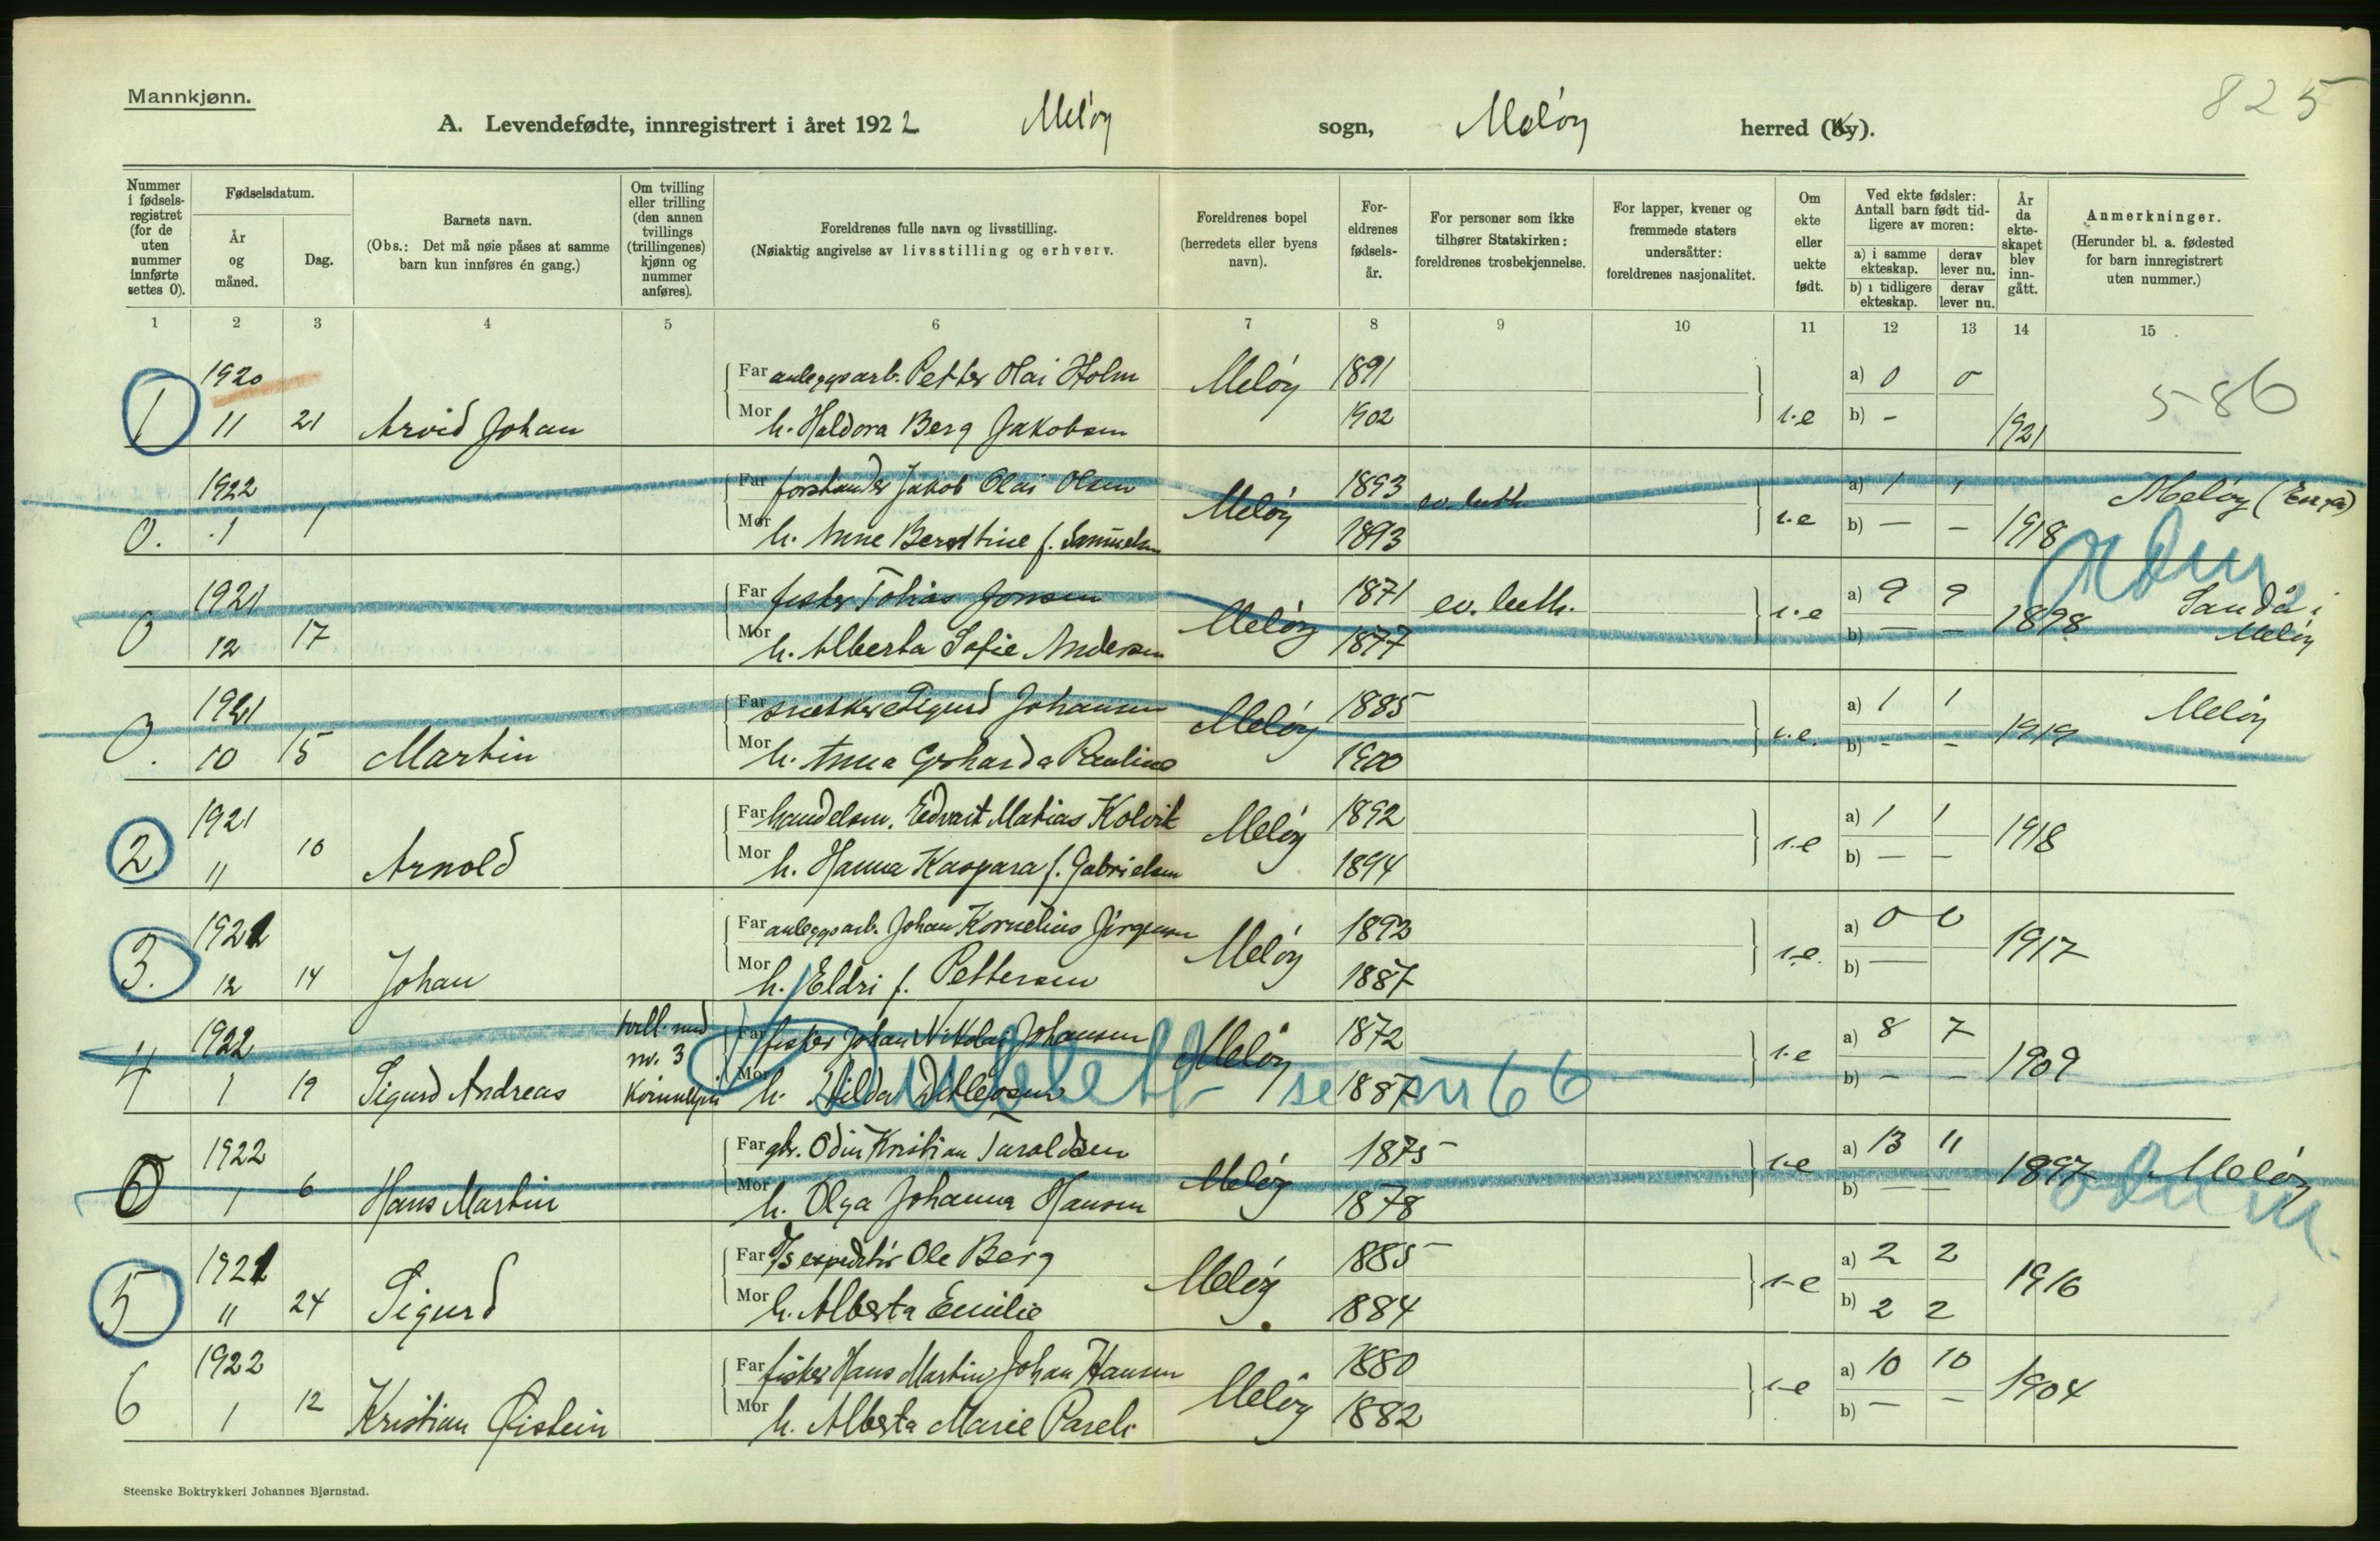 Mannkjønn.
825
A. Levendefødte, innregistrert i året 1922 Meløy sogn, Meløy herred (By).
Nummer i fødsels-registret (for de uten nummer innførte settes 0).
Fødselsdatum.
År og måned.
Dag.
Barnets navn.
(Obs.: Det må nøie påses at samme barn kun innføres én gang.)
Om tvilling eller trilling (den annen tvillings (trillingenes) kjønn og nummer anføres).
Foreldrenes fulle navn og livsstilling.
(Nøiaktig angivelse av livsstilling og erhverv.
Foreldrenes bopel (herredets eller byens navn).
For-eldrenes fødsels-år.
For personer som ikke tilhører Statskirken: foreldrenes trosbekjennelse.
For lapper, kvener og fremmede staters undersåtter: foreldrenes nasjonalitet.
Om ekte eller uekte født.
Ved ekte fødsler: Antall barn født tid-ligere av moren:
a) i samme ekteskap.
derav lever nu.
b) i tidligere ekteskap.
derav lever nu.
År da ekte-skapet blev inn-gått.
Anmerkninger.
(Herunder bl. a. fødested for barn innregistrert uten nummer.)
1 2 3 4 5 6 7 8 9 10 11 12 13 14 15
1920 Far anleggsarb. Petter Olai Holm Meløy 1891 a) 0 0 586
1 11 21 Arvid Johan Mor h. Haldora Berg Jakobsen 1902 1.e b) - 1921
1922 Far forstander Jakob Olai Olsen Meløy 1893 ev. luth. a) 1 1 Meløy (Enga)
0. 1 1 Mor h. Anne Berntine f. Samuelsen 1893 1.e b) — — 1918
1921 Far fisker Tobias Jonsen Meløy 1871 ev. luth. a) 9 9 Sandå i
0 12 17 Mor h. Alberta Sofie Andersen 1877 1.e b) — — 1898 Meløy
1921 Far Sigurd Johansen Meløy 1885 a) 1 1 Meløy
0. 10 15 Martin Mor h. Anna Gerharda Pauline 1900 1.e. b) - - 1919
1921 Far handelsm. Edvart Matias Kolvik Meløy 1892 a) 1 1
2 11 10 Arnold Mor h. Hanna Kaspara f. Gabrielsen 1894 1.e b) — — 1918
1921 Far anleggsarb. Johan Kornelius Jørgensen Meløy 1892 a) 0 0
3. 12 14 Johan Mor h. Eldri f. Pettersen 1887 1.e. b) — 1917
1922 tvill. med Far fisker Johan Nikolai Johansen Meløy 1872 a) 8 7
nr. 3
4 1 19 Sigurd Andreas Mor h. Hilda 1887 1.e b) - - 1909
Dublett se nr 66
1922 Far gbr. Odin Kristian Taraldsen Meløy 1875 a) 13 11
0 1 6 Hans Martin Mor h. Olga Johanna Hansen 1878 1.e b) — — 1897 Meløy
1921 Far D/S expeditør Ole Berg Meløy 1885 a) 2 2
5 11 24 Sigurd Mor h. Alberta Emilie 1884 1.e b) 2 2 1916
1922 Far fisker Hans Martin Johan Hansen Meløy 1880 a) 10 10
6 1 12 Kristian Øistein Mor h. Alberta Marie Pareli 1882 1.e b) — — 1904
Steenske Boktrykkeri Johannes Bjørnstad.